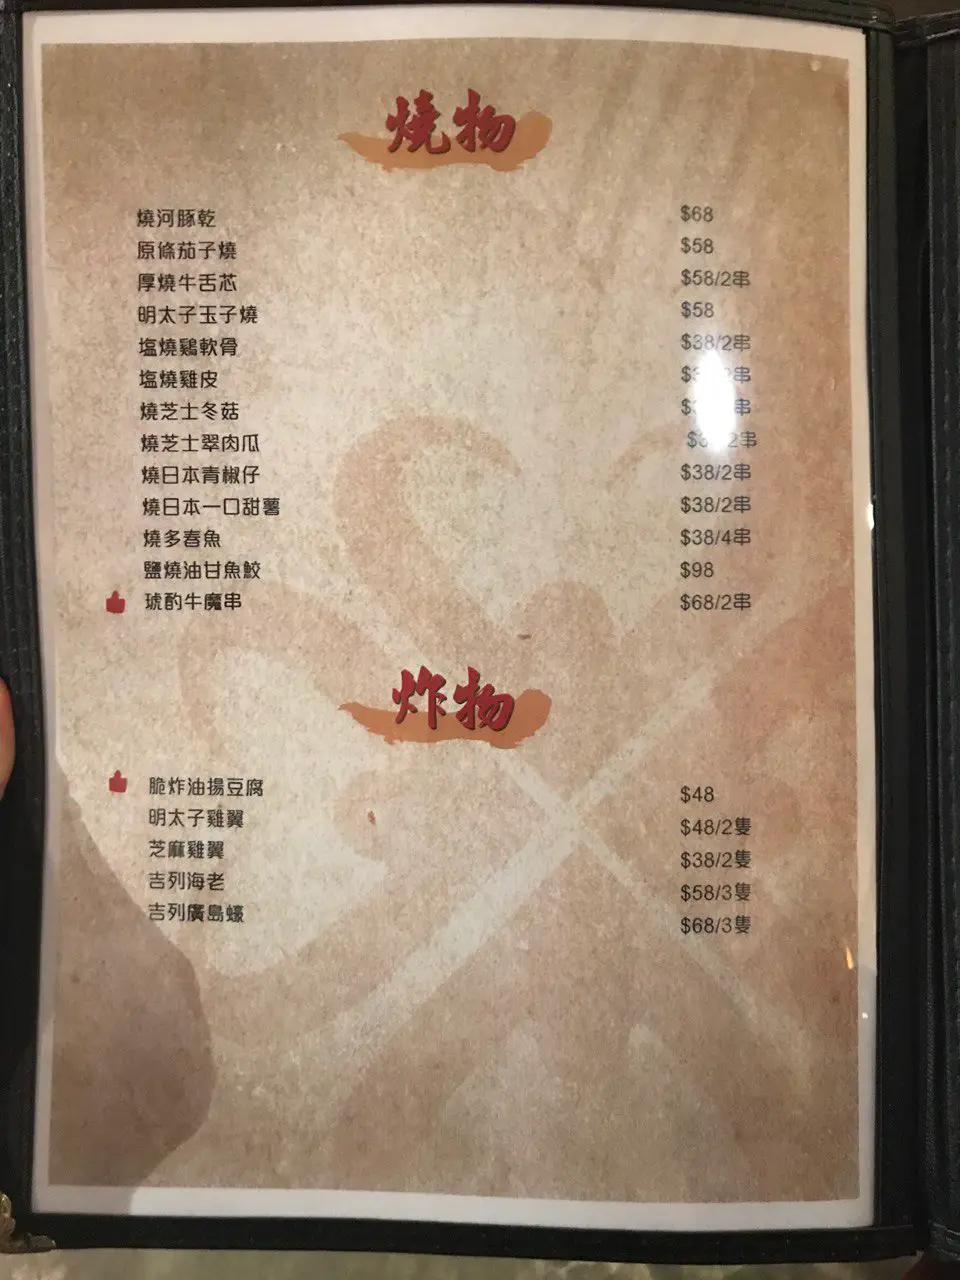 燒物
燒河豚乾 $68
原條茄子燒 $58
厚燒牛舌芯 $58/2串
明太子玉子燒 $58
塩燒鷄軟骨 $38/2串
塩燒雞皮 串
燒芝士冬菇 串
燒芝士翠肉瓜 2串
燒日本青椒仔 $38/2串
燒日本一口甜薯 $38/2串
燒多春魚 $38/4串
鹽燒油甘魚鮫 $98
琥酌牛魔串 $68/2串
炸物
脆炸油揚豆腐 $48
明太子雞翼 $48/2隻
芝麻雞翼 $38/2隻
吉列海老 $58/3隻
吉列廣島蠔 $68/3隻